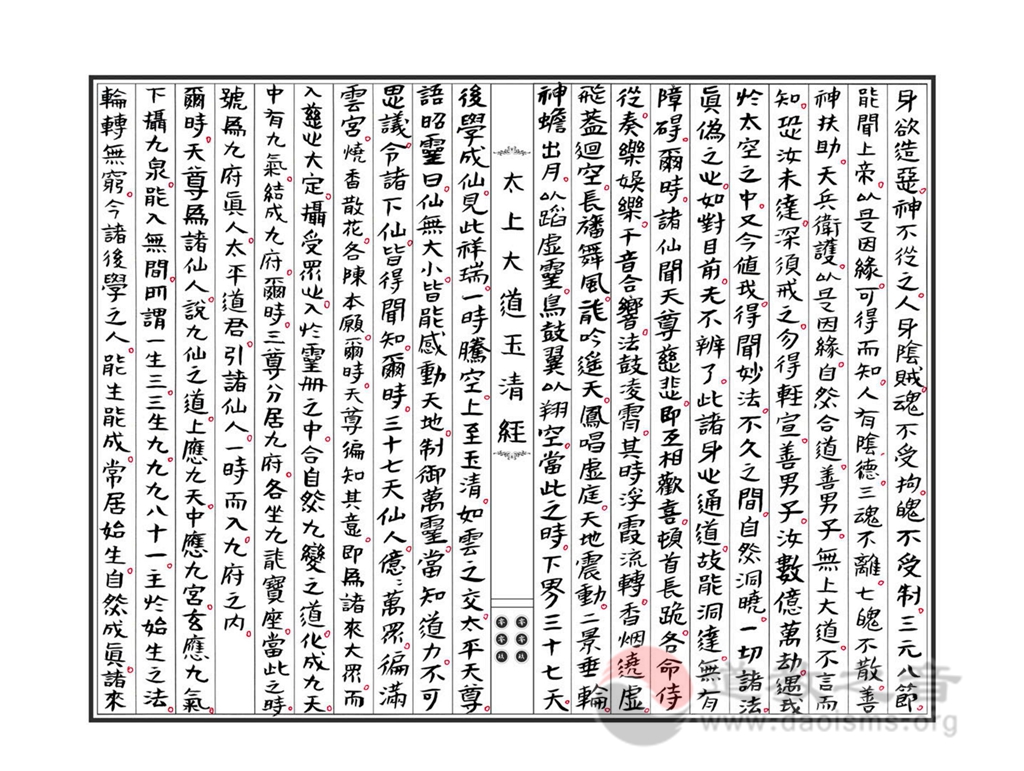 身欲造惡。神不從之。人身陰賊。魂不受拘。魄不受制。三元八節。
能聞上帝。以是因緣。可得而知。人有陰德。三魂不離。七魄不散。善
神扶助。天兵衛護。以是因緣。自然合道。善男子。無上大道。不言而
知。恐汝未達。深須戒之。勿得輕宣。善男子。汝數億萬劫。遇我
於太空之中。又今值我。得聞妙法。不久之間。自然洞曉。一切諸法。
真偽之也。如對目前。先不辨了。此諸身也。通道故。能洞達無有
障碍。爾時。諸仙聞天尊慈悲。即互相歡喜。頓首長跪。各命侍
從。奏樂娛樂。千音合響。法鼓凌霄。其時浮霞流轉。香烟遶虛。
飛蓋迴空。長旛舞風。龍吟遙天。鳳唱虛庭。天地震動。二景垂輪。
神蟾出月。以蹈虛靈。鳥鼓翼以翔空。當此之時。下界三十七天
太上大道玉清經
後學成仙。見此祥瑞。一時騰空。上至玉清。如雲之交。太平天尊
語昭靈曰。仙無大小。皆能感動天地。制御萬靈。當知道力。不可
思議。令諸下仙。皆得聞知。爾時。三十七天仙人。億億萬眾。徧滿
雲宮。燒香散花。各陳本願。爾時。天尊徧知其意。即為諸來大眾而
入慈也大定。攝受眾也。入於靈冊之中。合自然九變之道。化成九天。
中有九氣。結成九府。爾時。三尊分居九府。各坐九龍寶座。當此之時。
號為九府真人。太平道君。引諸仙人。一時而入九府之內。
爾時。天尊為諸仙人。說九仙之道。上應九天。中應九宮。玄應九氣。
下攝九泉。能入無間。所謂一生三。三生九。九九八十一。主於始生之法。
輪轉無窮。今諸後學之人。能生能成。常居始生。自然成真。諸來
道教之音
www.daoisms.org